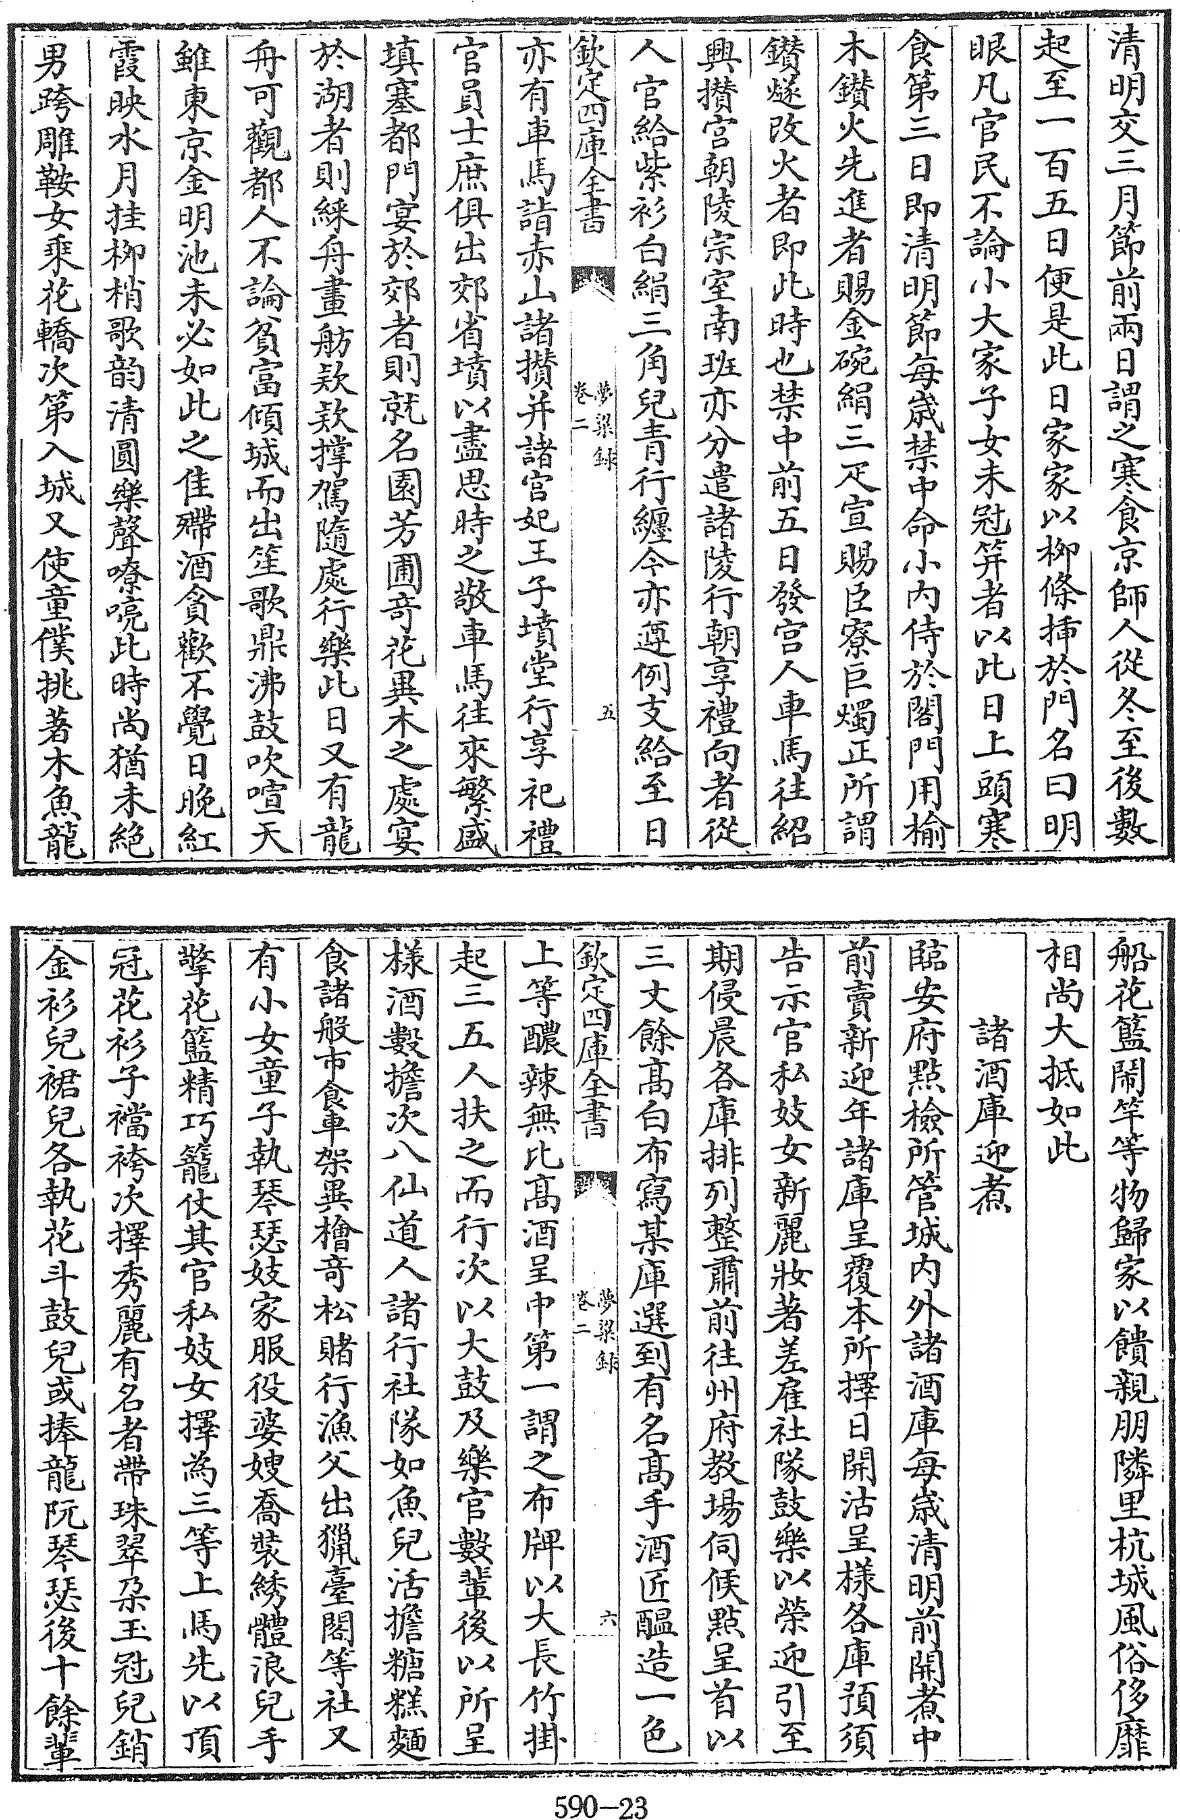 清明交三月節前兩日謂之寒食京師人從冬至後數
起至一百五日便是此日家家以柳條揷於門名曰明
眼凡官民不論小大家子女未冠笄者以此日上頭寒
食第三日即清明節每歲禁中命小内侍於閣門用榆
木鑽火先進者賜金碗絹三疋宣賜臣寮巨燭正所謂
鑽燧改火者即此時也禁中前五日發宫人車馬往紹
興攢宫朝陵宗室南班亦分遣諸陵行朝享禮向者從
人官給紫衫白絹三角兒青行纏今亦遵例支給至日
欽定四庫全書
夢粱録
卷二
五
亦有車馬詣赤山諸攢并諸宫妃王子墳堂行享祀禮
官員士庶俱出郊省墳以盡思時之敬車馬往來繁盛
填塞都門宴於郊者則就名園芳圃奇花異木之處宴
於湖者則綵舟畫舫欵欵撑駕隨處行樂此日又有龍
舟可觀都人不論貧富傾城而出笙歌鼎沸鼓吹喧天
雖東京金明池未必如此之佳殢酒貪歡不覺日晚紅
霞映水月挂柳梢歌韵清圓樂聲嘹喨此時尚猶未絶
男跨雕鞍女乘花轎次第入城又使童僕挑著木魚龍
船花籃鬧竿等物歸家以饋親朋隣里杭城風俗侈靡
相尚大抵如此
諸酒庫迎煮
臨安府點檢所管城内外諸酒庫每歲清明前開煮中
前賣新迎年諸庫呈覆本所擇日開沽呈様各庫預須
告示官私妓女新麗妝著差雇社隊鼓樂以榮迎引至
期侵晨各庫排列整肅前往州府教塲伺候點呈首以
三丈餘髙白布寫某庫選到有名髙手酒匠醖造一色
欽定四庫全書
夢粱録
卷二
六
上等醲辣無比髙酒呈中第一謂之布牌以大長竹掛
起三五人扶之而行次以大鼓及樂官數輩後以所呈
様酒數擔次八仙道人諸行社隊如魚兒活擔糖糕麵
食諸般市食車架異檜奇松賭行漁父出獵臺閣等社又
有小女童子執琴瑟妓家服役婆嫂喬裝綉體浪兒手
擎花籃精巧籠仗其官私妓女擇為三等上馬先以頂
冠花衫子襠袴次擇秀麗有名者帶珠翠朶玉冠兒銷
金衫兒裙兒各執花斗鼓兒或捧龍阮琴瑟後十餘輩
590-23